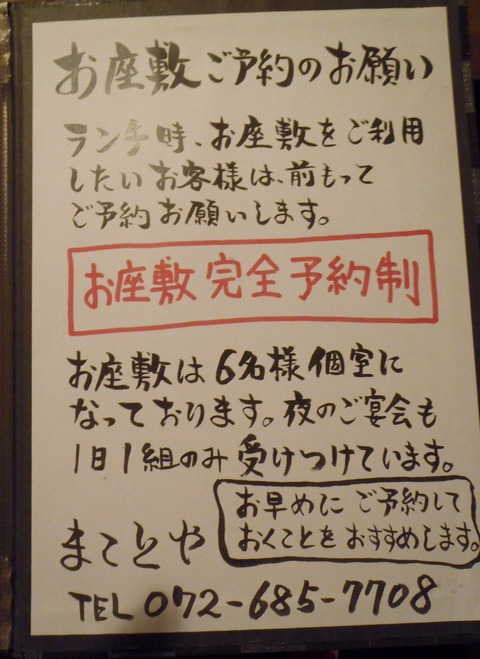 お座敷ご予約のお願い
ランチ時、お座敷をご利用
したいお客様は、前もって
ご予約お願いします。
お座敷完全予約制
お座敷は6名様個室に
なっております。夜のご宴会も
1日1組のみ受けつけています。
お早めにご予約して
おくことをおすすめします。
まことや
TEL 072-685-7708